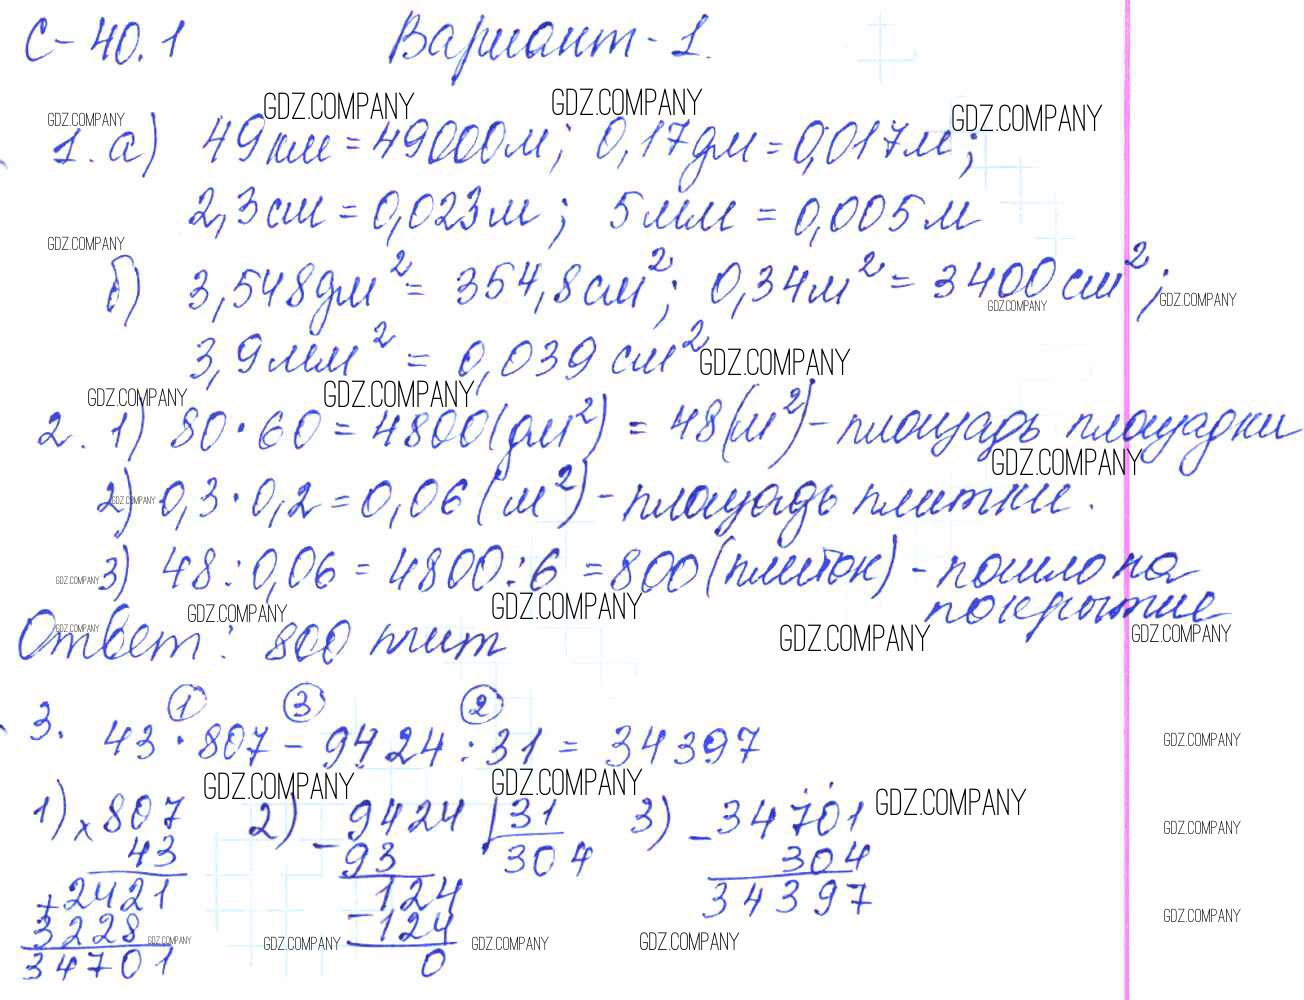 С-40.1 Вариант-1.
GDZ.COMPANY GDZ.COMPANY GDZ.COMPANY GDZ.COMPANY
1. а) 49км = 49000м; 0,17дм = 0,017м;
2,3см = 0,023м; 5мм = 0,005м
GDZ.COMPANY
б) 3,548дм² = 354,8см²; 0,34м² = 3400см²;
GDZ.COMPANY GDZ.COMPANY
3,9мм² = 0,039см²
GDZ.COMPANY
GDZ.COMPANY GDZ.COMPANY
2. 1) 80·60 = 4800(дм²) = 48(м²) - площадь площадки
GDZ.COMPANY
2) 0,3·0,2 = 0,06(м²) - площадь плитки.
GDZ.COMPANY
3) 48:0,06 = 4800:6 = 800(плиток) - пошло на
покрытие
GDZ.COMPANY GDZ.COMPANY GDZ.COMPANY
Ответ: 800 плит
GDZ.COMPANY GDZ.COMPANY GDZ.COMPANY
1 3 2
3. 43·807 - 9424:31 = 34397
GDZ.COMPANY
GDZ.COMPANY GDZ.COMPANY GDZ.COMPANY
1) × 807 2) - 9424 | 31 3) - 34701
GDZ.COMPANY
43 93 304 304
+ 2421 124 34397
3228 - 124
GDZ.COMPANY GDZ.COMPANY GDZ.COMPANY GDZ.COMPANY GDZ.COMPANY
34701 0